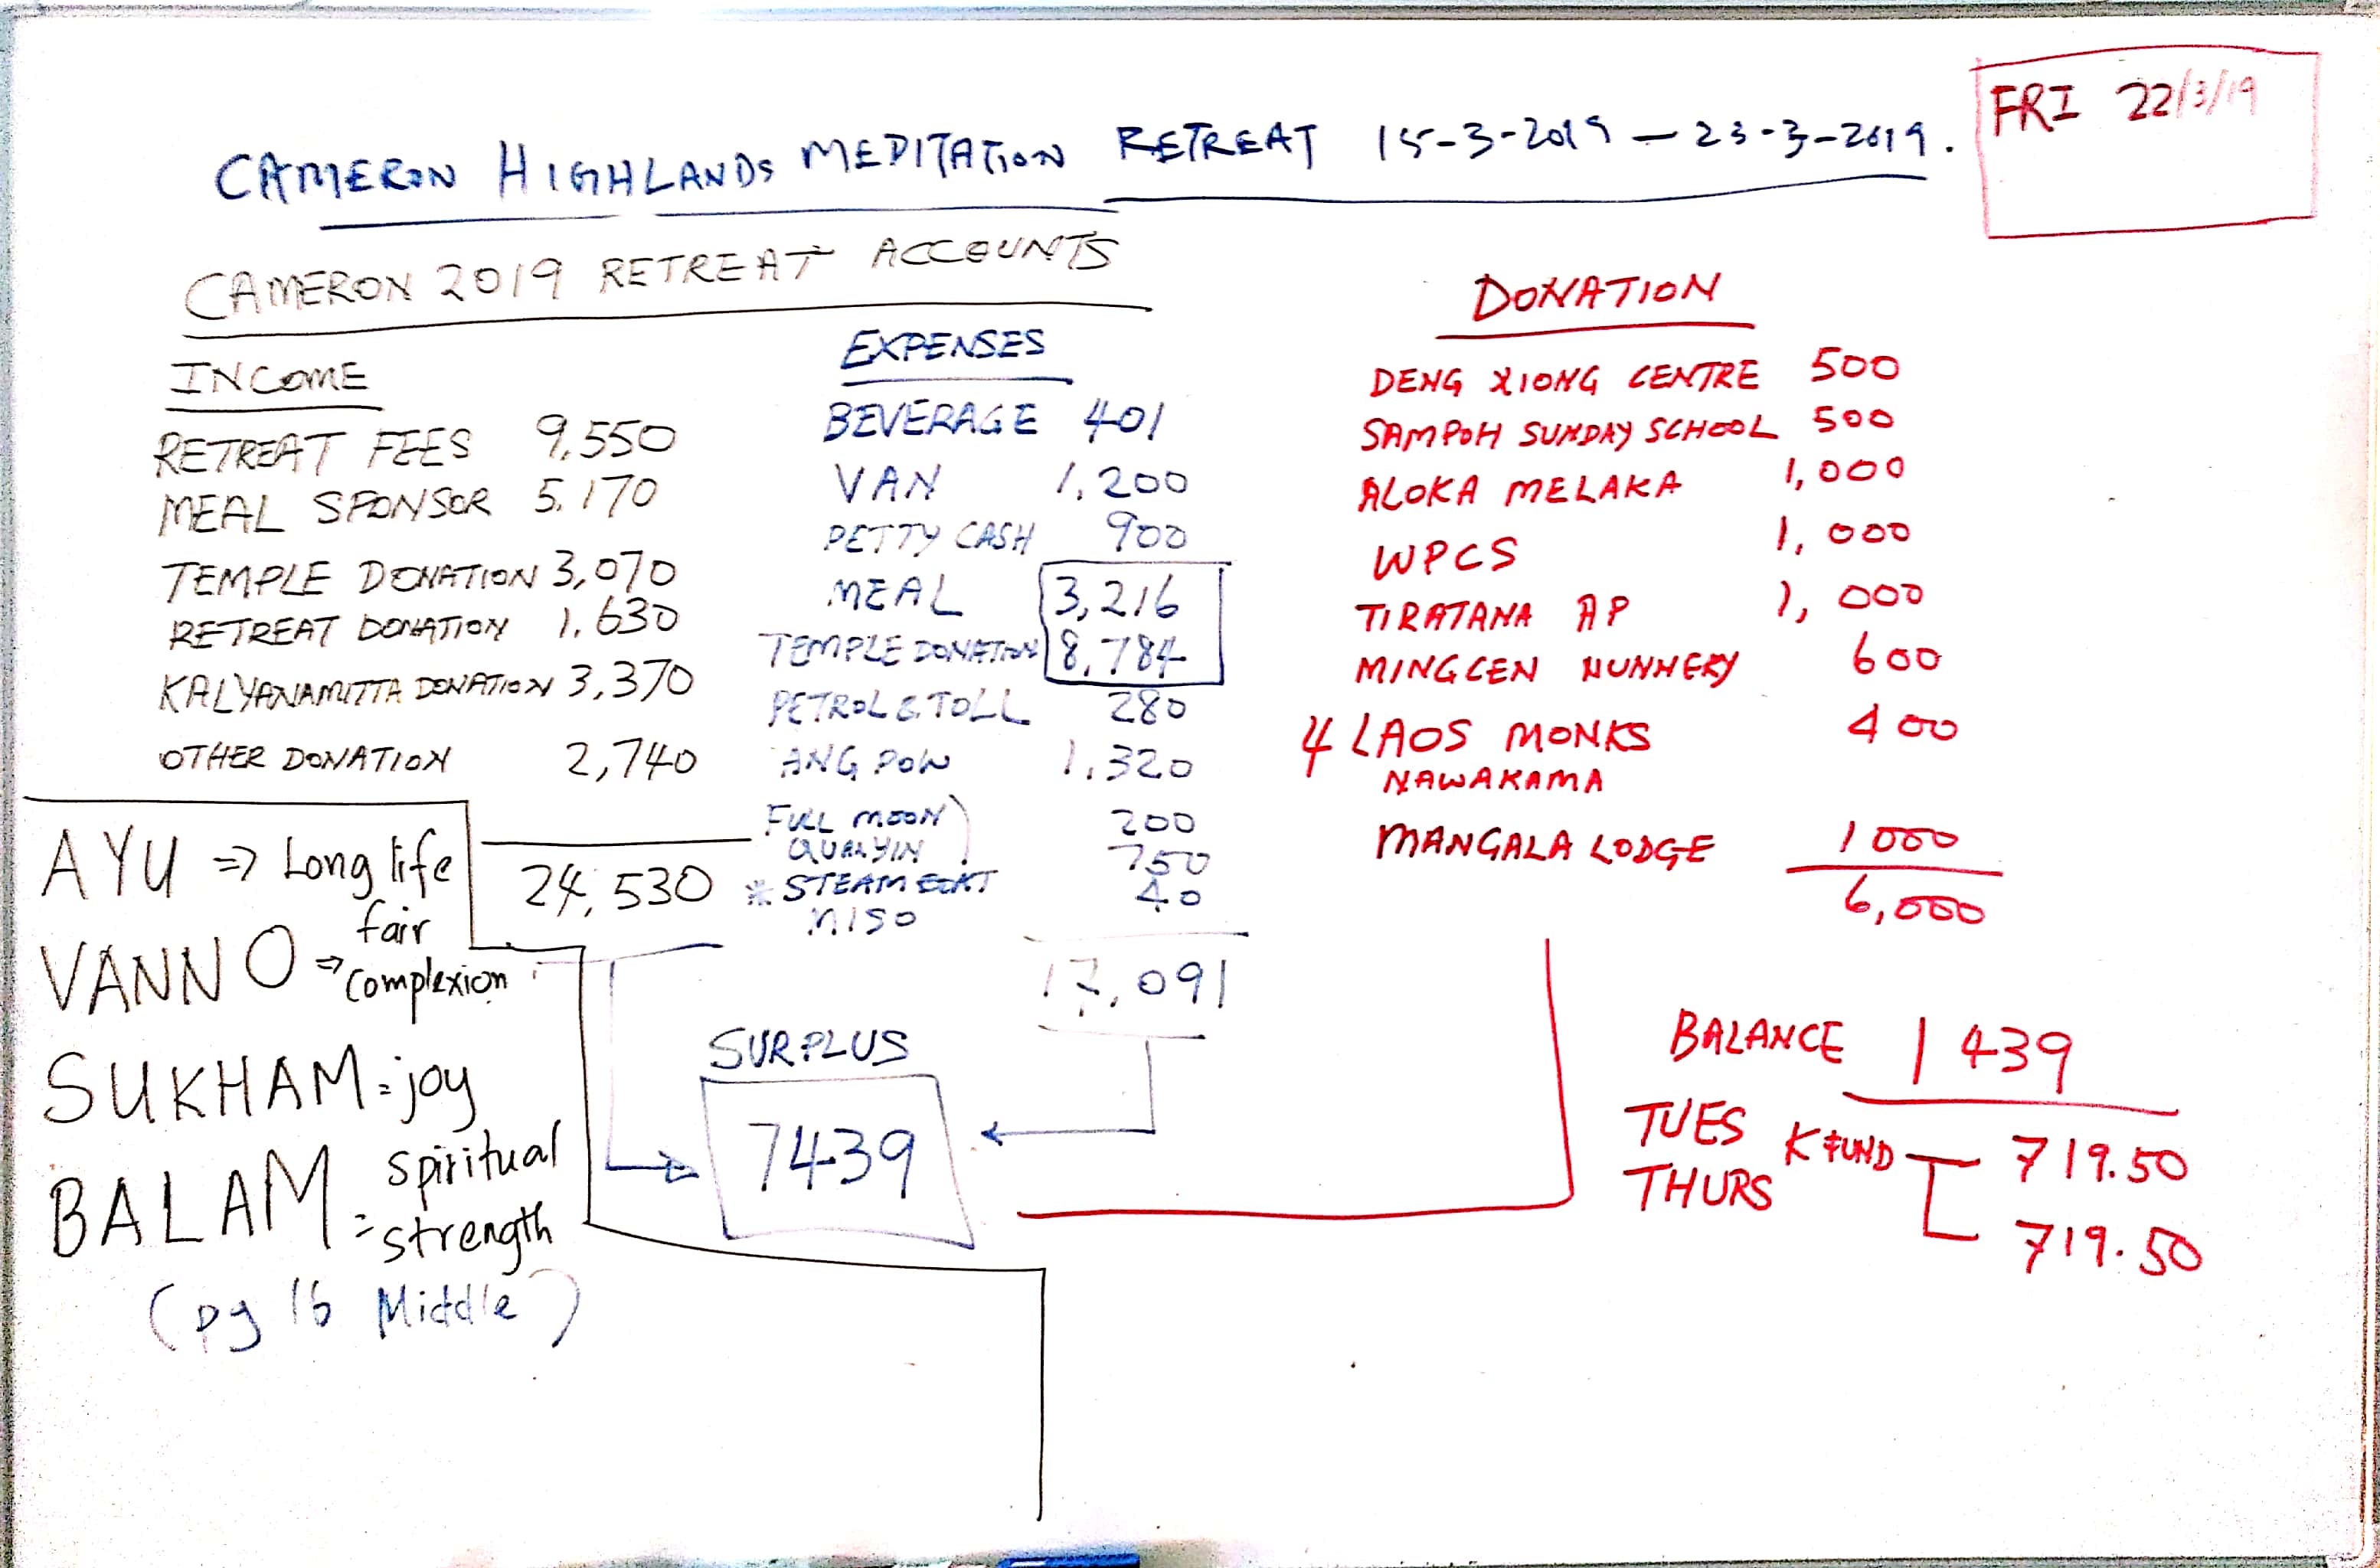 CAMERON HIGHLANDS MEDITATION RETREAT 15-3-2019 – 23-3-2019.
FRI 22/3/19
CAMERON 2019 RETREAT ACCOUNTS
INCOME
RETREAT FEES 9,550
MEAL SPONSOR 5,170
TEMPLE DONATION 3,070
RETREAT DONATION 1,630
KALYANAMITTA DONATION 3,370
OTHER DONATION 2,740
24,530
EXPENSES
BEVERAGE 401
VAN 1,200
PETTY CASH 900
MEAL 3,216
TEMPLE DONATION 8,784
PETROL & TOLL 280
ANG POW 1,320
FULL MOON) 200
QUANYIN ) 750
* STEAMBOAT 40
MISO
17,091
SURPLUS
7439
DONATION
DENG XIONG CENTRE 500
SAMPOH SUNDAY SCHOOL 500
ALOKA MELAKA 1,000
WPCS 1,000
TIRATANA AP 1,000
MINGCEN NUNNERY 600
4 LAOS MONKS 400
NAWAKAMA
MANGALA LODGE 1000
6,000
BALANCE 1439
TUES K FUND 719.50
THURS 719.50
AYU => Long life
VANNO => fair complexion
SUKHAM = joy
BALAM = spiritual strength
(pg 16 Middle)